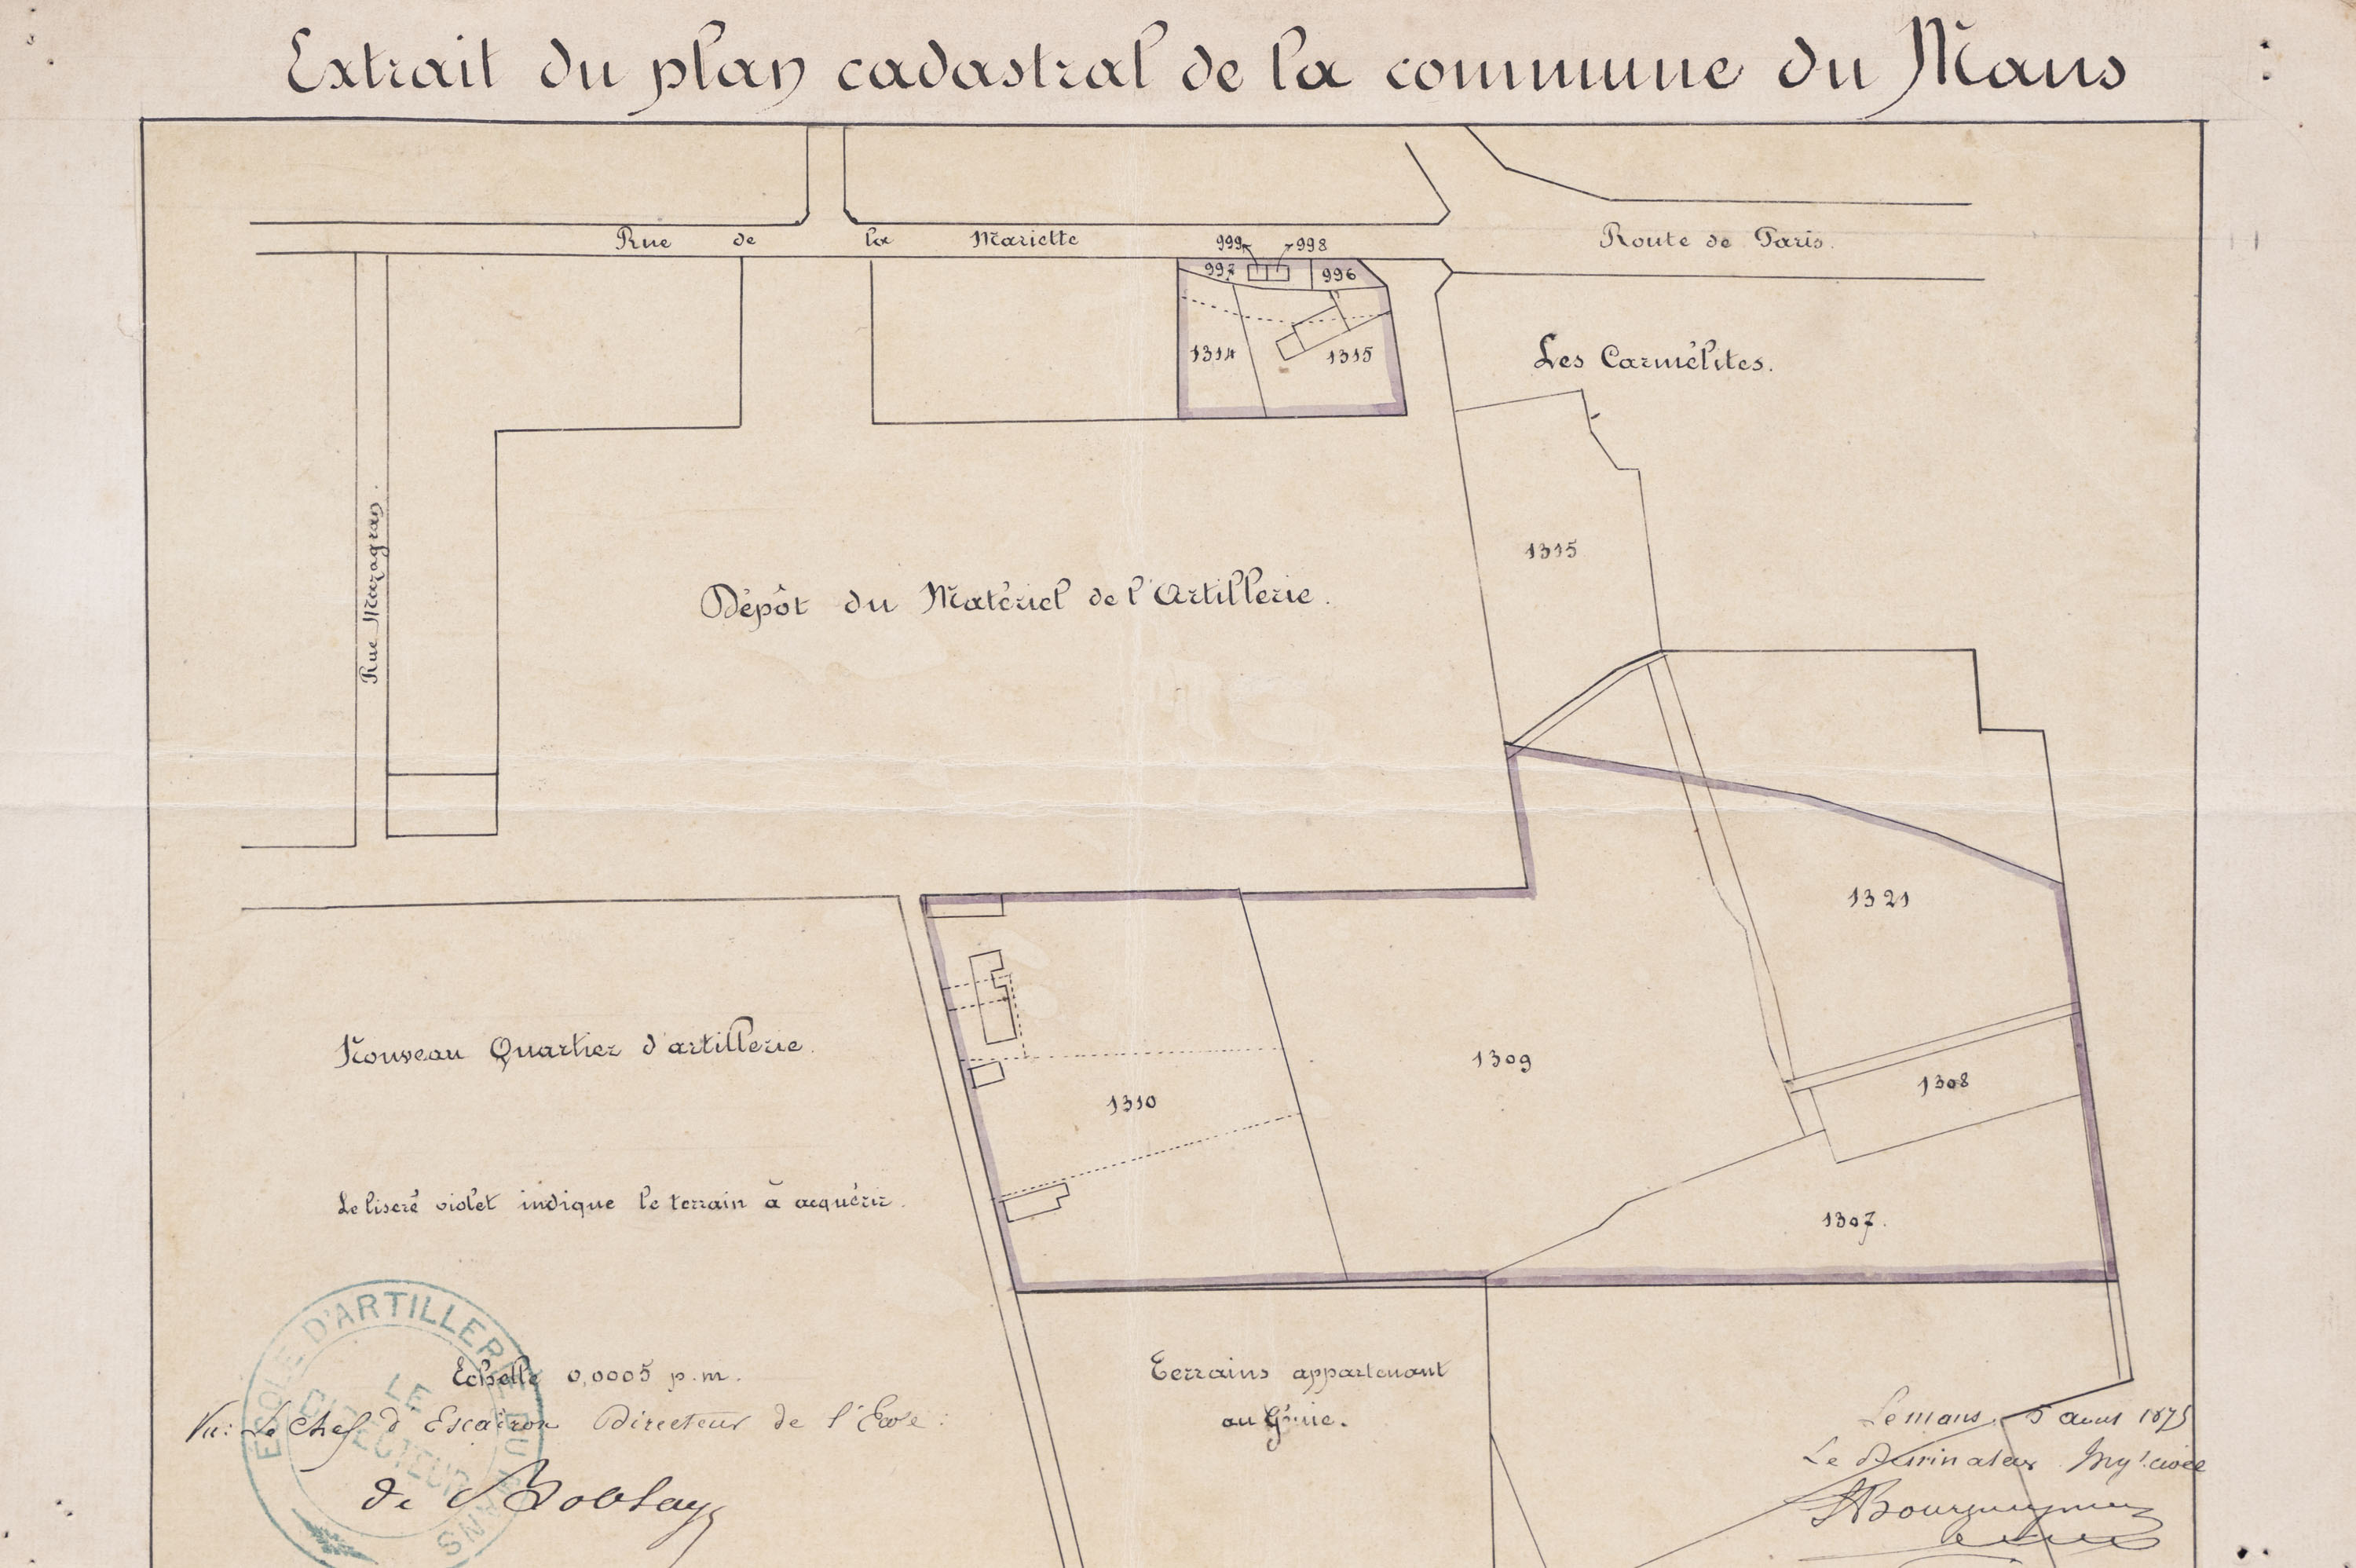 Extrait du plan cadastral de la commune du Mans
Rue de la Mariette
999 998
997 996
Route de Paris.
1314 1315
Les Carmélites.
Rue Mazagran.
1315
Dépôt du Matériel de l'Artillerie.
1321
Nouveau Quartier d'artillerie.
1310
1309
1308
Le liseré violet indique le terrain à acquérir.
1307.
ECOLE D'ARTILLERIE DU MANS
LE
DIRECTEUR
Echelle 0,0005 p.m.
Terrains appartenant
au Génie.
Vu: Le Chef d'Escadron Directeur de l'Ecole:
de
Le mans, 5 1875
Le